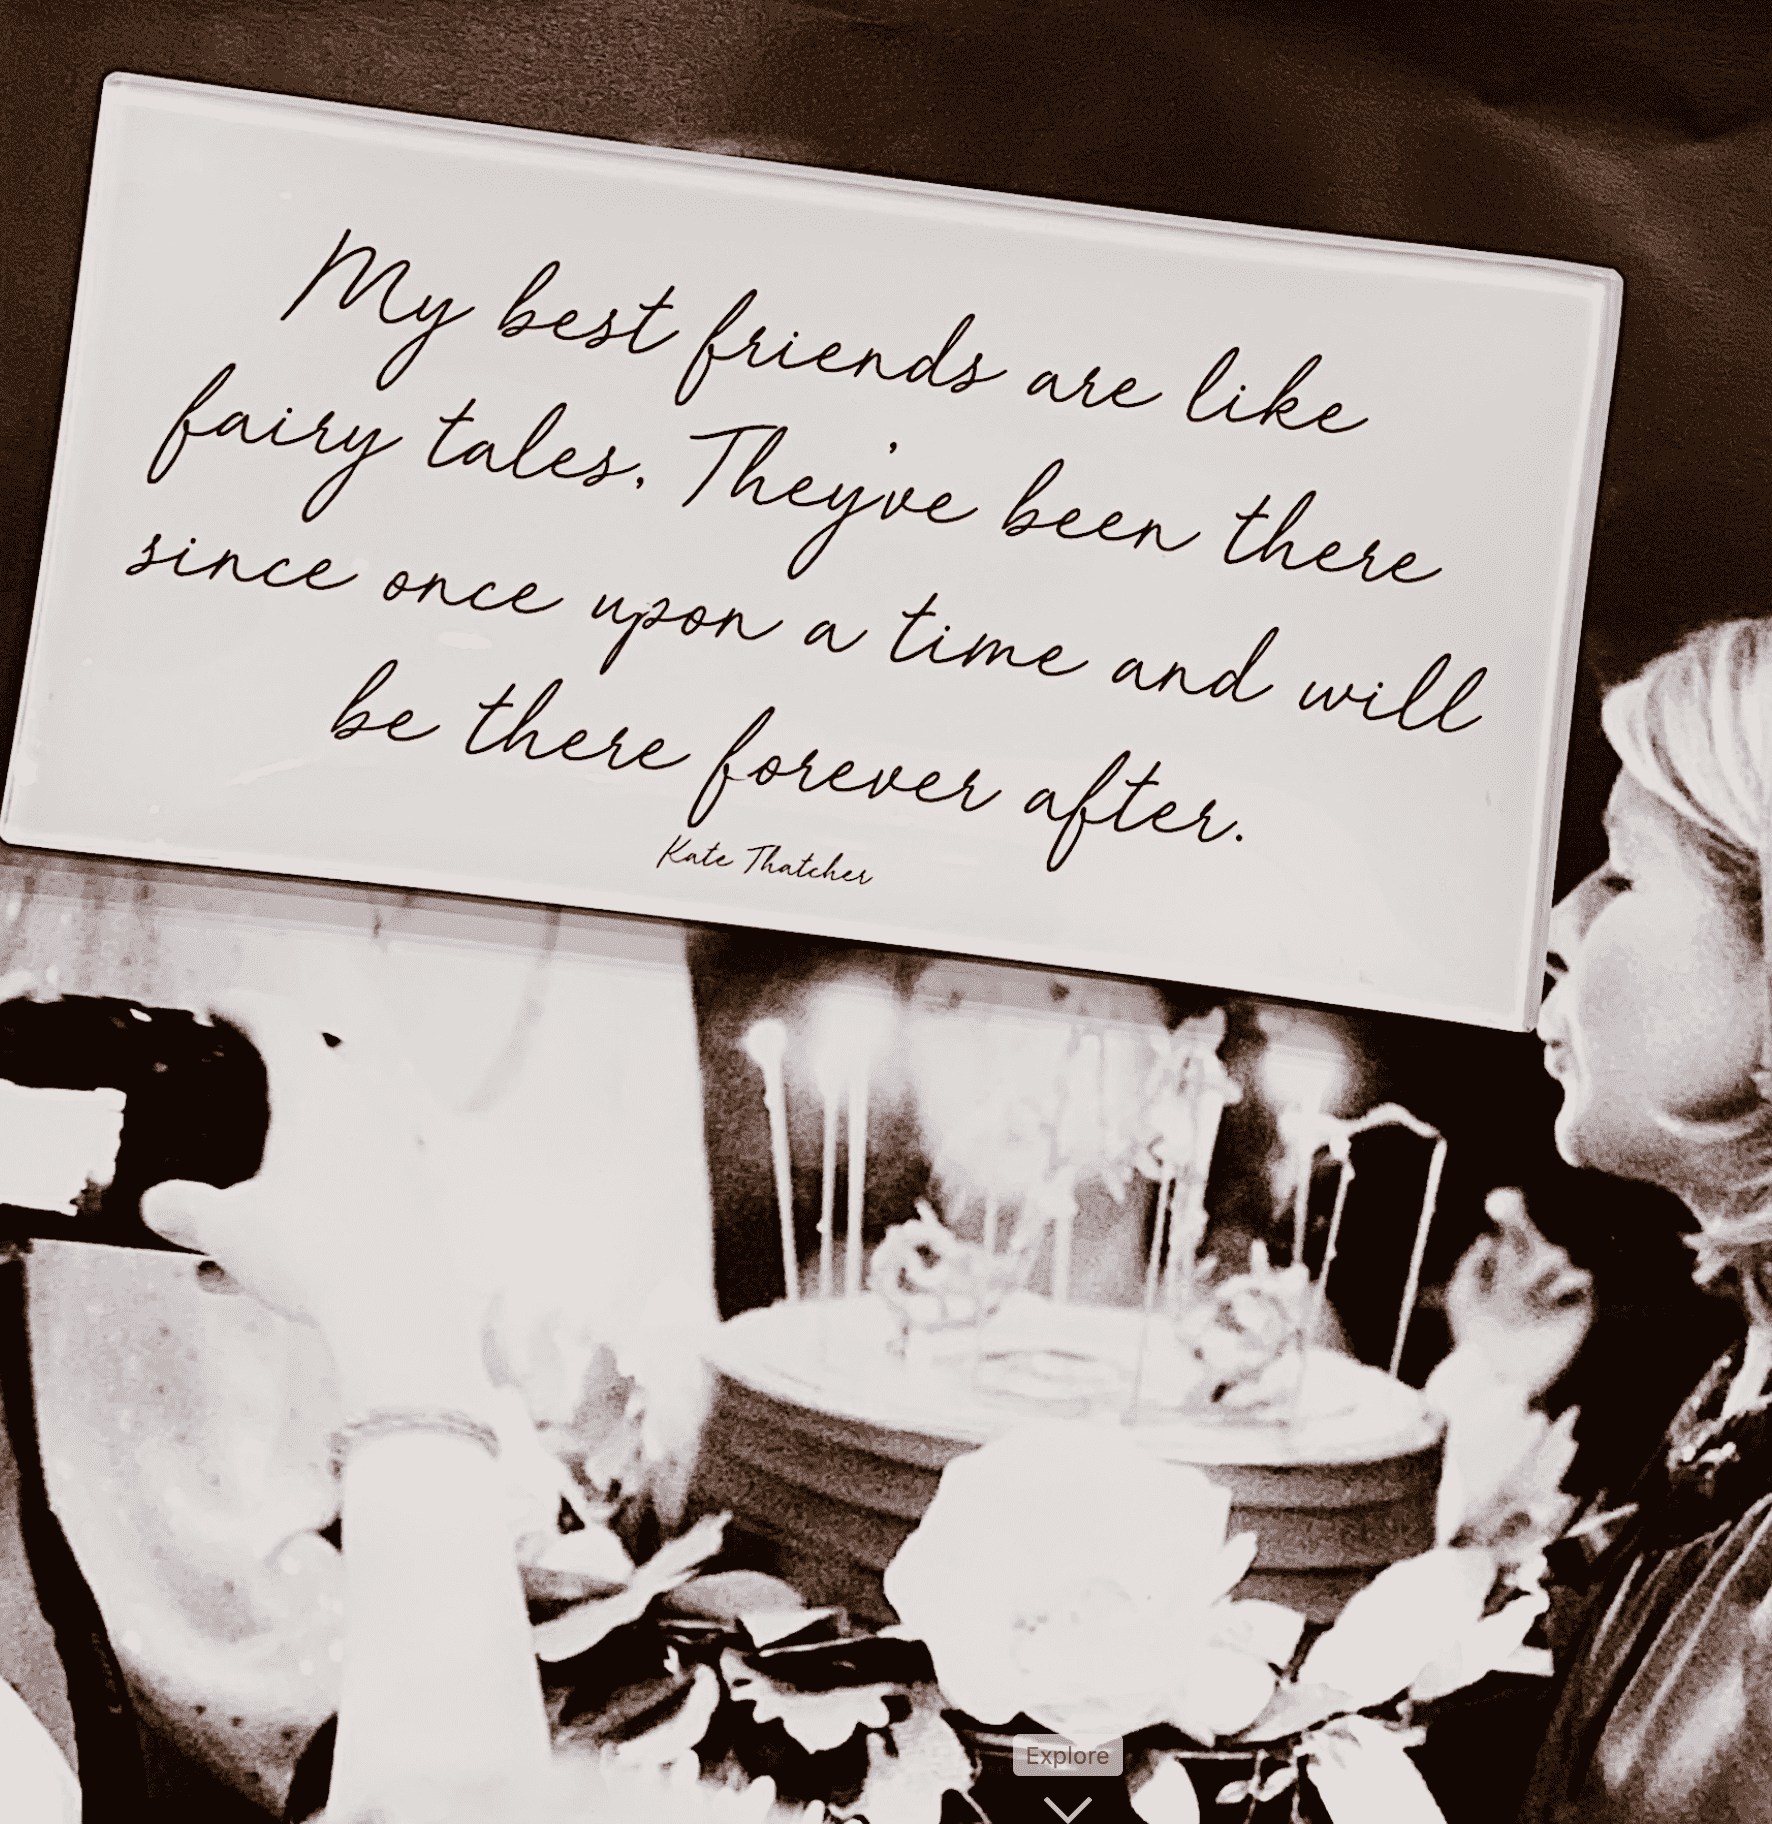 My best friends are like
fairy tales. They've been there
since once upon a time and will
be there forever after.
Kate Thatcher
Explore